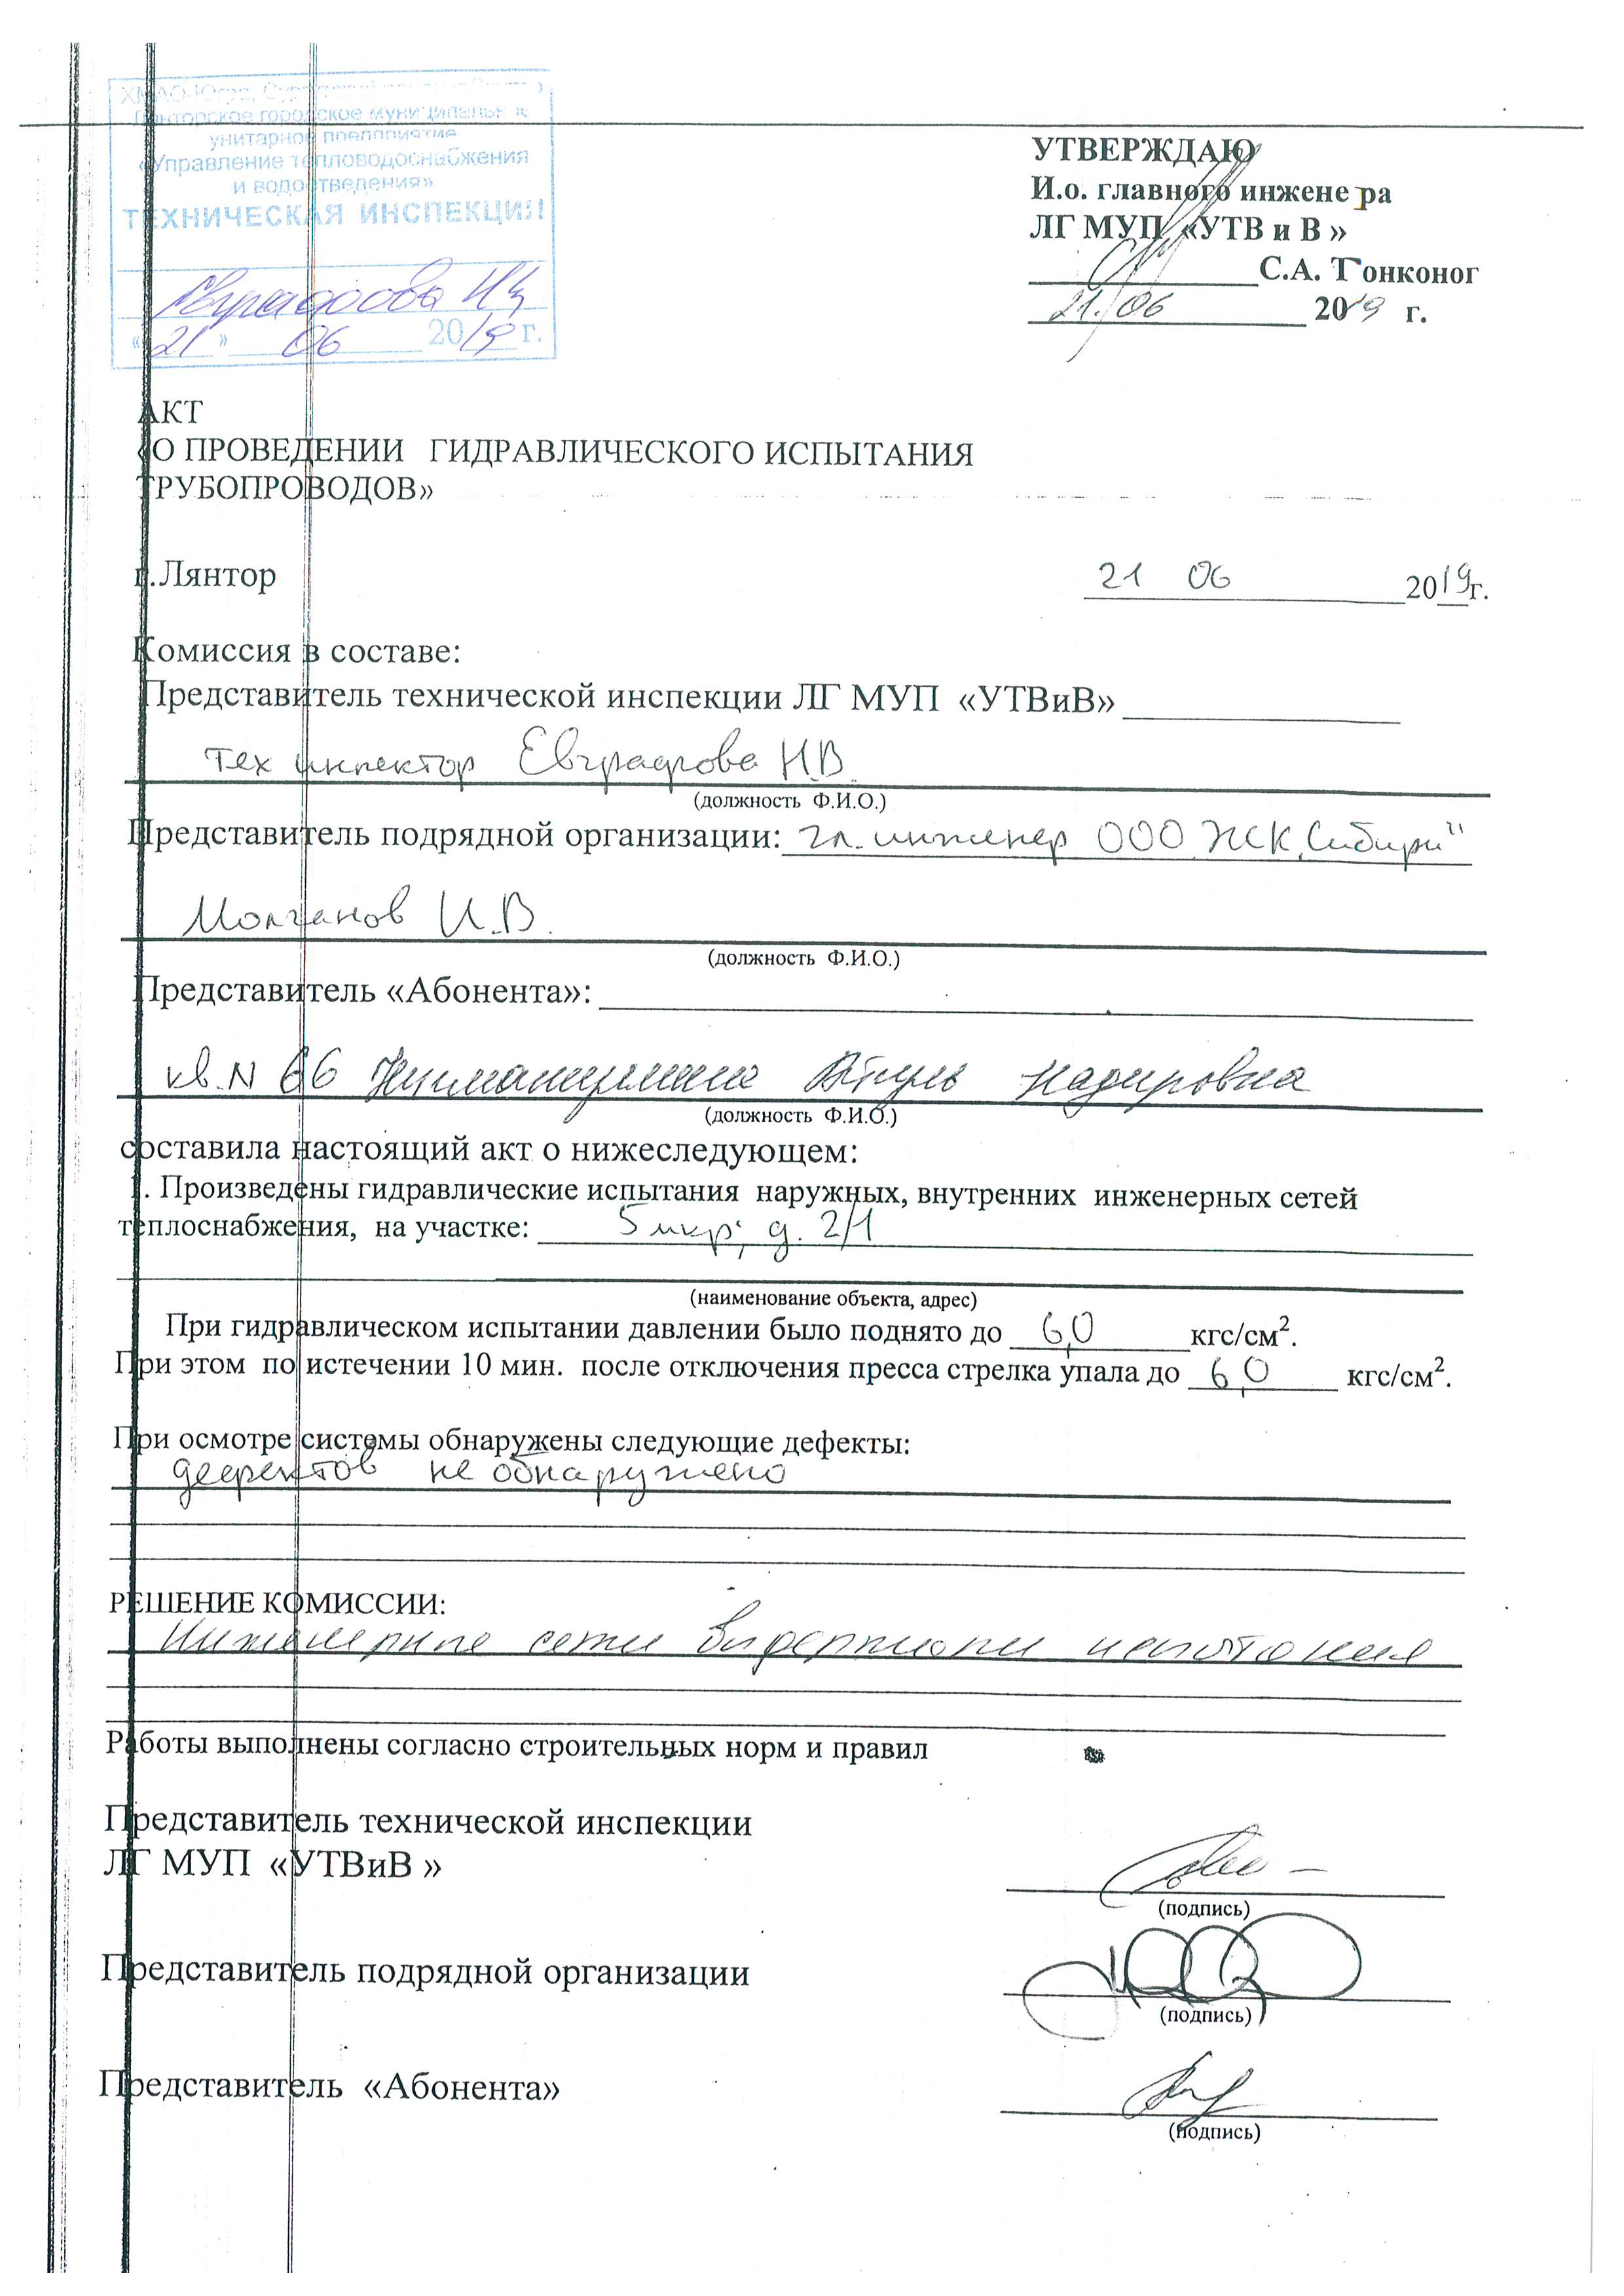 ХМАО-Югра,
Лянторское городское муниципальное
унитарное предприятие
«Управление тепловодоснабжения
и водоотведения»
ТЕХНИЧЕСКАЯ ИНСПЕКЦИЯ
Евграфова Н.В.
«21» 06 2019 г.
УТВЕРЖДАЮ
И.о. главного инженера
ЛГ МУП «УТВ и В »
С.А. Тонконог
21.06 2019 г.
АКТ
«О ПРОВЕДЕНИИ ГИДРАВЛИЧЕСКОГО ИСПЫТАНИЯ
ТРУБОПРОВОДОВ»
г.Лянтор 21 06 2019г.
Комиссия в составе:
Представитель технической инспекции ЛГ МУП «УТВиВ»
тех инспектор Евграфова Н.В.
(должность Ф.И.О.)
Представитель подрядной организации: гл. инженер ООО ЖК „Сибири"
Молчанов И.В.
(должность Ф.И.О.)
Представитель «Абонента»:
кв. N 66 Надировна
(должность Ф.И.О.)
составила настоящий акт о нижеследующем:
1. Произведены гидравлические испытания наружных, внутренних инженерных сетей
теплоснабжения, на участке: 5 мкр; д. 2/1
(наименование объекта, адрес)
При гидравлическом испытании давлении было поднято до 6,0 кгс/см².
При этом по истечении 10 мин. после отключения пресса стрелка упала до 6,0 кгс/см².
При осмотре системы обнаружены следующие дефекты:
дефектов не обнаружено
РЕШЕНИЕ КОМИССИИ:
Инженерные сети выдержали испытания
Работы выполнены согласно строительных норм и правил
Представитель технической инспекции
ЛГ МУП «УТВиВ »
(подпись)
Представитель подрядной организации
(подпись)
Представитель «Абонента»
(подпись)